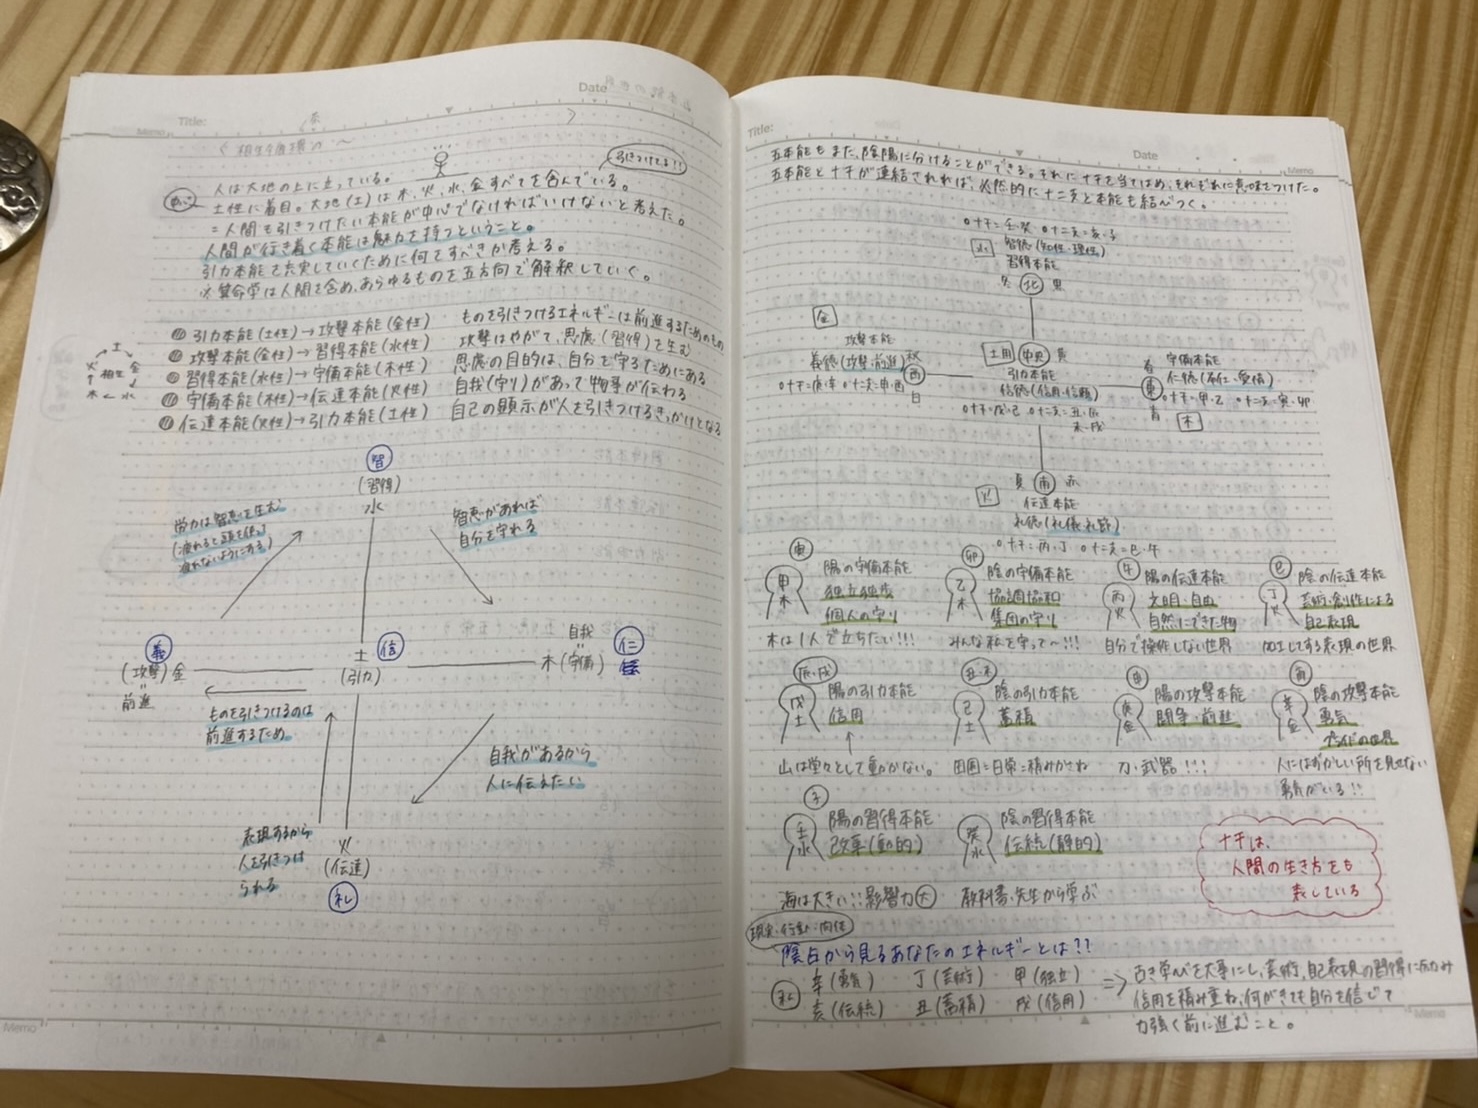 Title:
Date
Memo
引きつけてる!!
人は大地の上に立っている。
土性に着目。大地(土)は木、火、水、金すべてを含んでいる。
=人間も引きつけたい本能が中心でなければいけないと考えた。
人間が行き着く本能は魅力を持つということ。
引力本能を充実していくために何をすべきか考える。
※算命学は人間を含め、あらゆるものを五方向で解釈していく。
引力本能(土性)→攻撃本能(金性) ものを引きつけるエネルギーは前進するためのもの
攻撃本能(金性)→習得本能(水性) 攻撃はやがて、思慮(習得)を生む
習得本能(水性)→守備本能(木性) 思慮の目的は、自分を守るためにある
守備本能(木性)→伝達本能(火性) 自我(守り)があって物事が伝わる
伝達本能(火性)→引力本能(土性) 自己の顕示が人を引きつけるきっかけとなる
土
火 相生 金
木 ← 水
智
(習得)
水
労力は智恵を生む
(疲れると頭を使う)
疲れないようにする)
智恵があれば
自分を守れる
義
(攻撃)金
前進
土 信
(引力)
自我
木(守備)
仁
ものを引きつけるのは
前進するため
自我があるから
人に伝えたい
表現するから
人を引きつけ
られる
火
(伝達)
礼
Memo
Title:
Date
Memo
五本能もまた、陰陽に分けることができる。それに十干を当てはめ、それぞれに意味をつけた。
五本能と十干が連結されれば、必然的に十二支と本能も結びつく。
○十干=壬・癸 ○十二支=亥・子
水 智徳(知性・理性)
習得本能
冬 北 黒
金
攻撃本能
義徳(攻撃・前進) 秋 西
○十干=庚・辛 ○十二支=申・酉 白
土用 中央 黄
引力本能
信徳(信用・信頼)
○十干=戊・己 ○十二支=丑・辰
未・戌
春 守備本能
東 仁徳(奉仕・愛情)
○十干=甲・乙 ○十二支=寅・卯
青 木
火 夏 南 赤
伝達本能
礼徳(礼儀・礼節)
○十干=丙・丁 ○十二支=巳・午
寅
甲木
陽の守備本能
独立独歩
個人の守り
木は1人で立ちたい!!!
卯
乙木
陰の守備本能
協調協和
集団の守り
みんな私を守って〜!!!
午
丙火
陽の伝達本能
文明・自由
自然にできた物
自分で操作しない世界
巳
丁火
陰の伝達本能
芸術・創作による
自己表現
加工してする表現の世界
辰・戌
戊土
陽の引力本能
信用
山は堂々として動かない。
丑・未
己土
陰の引力本能
蓄積
田園=日常=積みかさね
申
庚金
陽の攻撃本能
闘争・前進
刀・武器!!!
酉
辛金
陰の攻撃本能
勇気
プライドの世界
人にはずかしい所を見せない
勇気がいる!!
子
壬水
陽の習得本能
改革(動的)
海は大きい::影響力大
癸水
陰の習得本能
伝統(静的)
教科書、先生から学ぶ
十干は、
人間の生き方をも
表している
現実・行動・肉体
陰占から見るあなたのエネルギーとは??
私
辛(勇気) 丁(芸術) 甲(独立)
亥(伝統) 丑(蓄積) 戌(信用)
⇒ 古き学びを大事にし、芸術、自己表現の習得に
信用を積み重ね、何がきても自分を信じて
力強く前に進むこと。
Memo